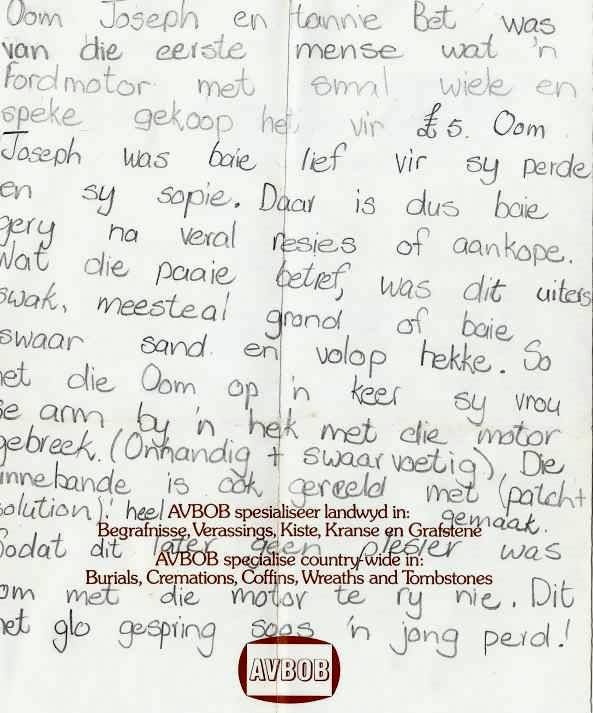 Oom Joseph en tannie Bet was
van die eerste mense wat 'n
Fordmotor met smal wiele en
speke gekoop het vir £5. Oom
Joseph was baie lief vir sy perde
en sy sopie. Daar is dus baie
gery na veral resies of aankope.
Wat die paaie betref, was dit uiters
swak, meesteal grond of baie
swaar sand en volop hekke. So
het die Oom op 'n keer sy vrou
se arm by 'n hek met die motor
gebreek. (Onhandig + swaarvoetig). Die
innebande is ook gereeld met (patch+
solution). heel gemaak.
AVBOB spesialiseer landwyd in:
Begrafnisse, Verassings, Kiste, Kranse en Grafstene
Sodat dit later geen plesier was
AVBOB specialise country-wide in:
Burials, Cremations, Coffins, Wreaths and Tombstones
om met die motor te ry nie. Dit
het glo gespring soos 'n jong perd!
AVBOB